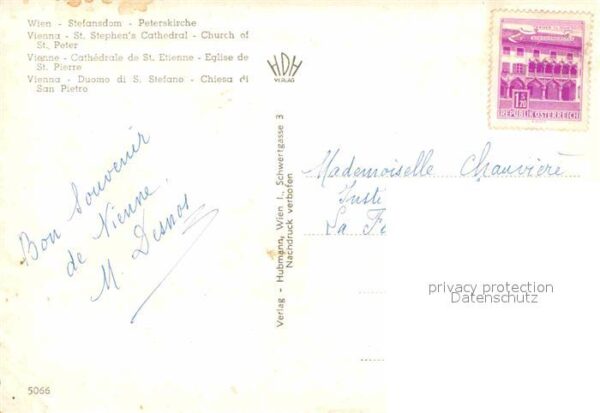 Wien - Stefansdom - Peterskirche
Vienna - St. Stephen's Cathedral - Church of
St. Peter
Vienne - Cathédrale de St. Etienne - Eglise de
St. Pierre
Vienna - Duomo di S. Stefano - Chiesa di
San Pietro
HDH
VERLAG
1 S 20
REPUBLIK ÖSTERREICH
Bon Souvenir
de Vienne.
M Desnos
Verlag - Hubmann, Wien I., Schwertgasse 3
Nachdruck verboten
Mademoiselle Chauvière
Juste
La F
privacy protection
Datenschutz
5066